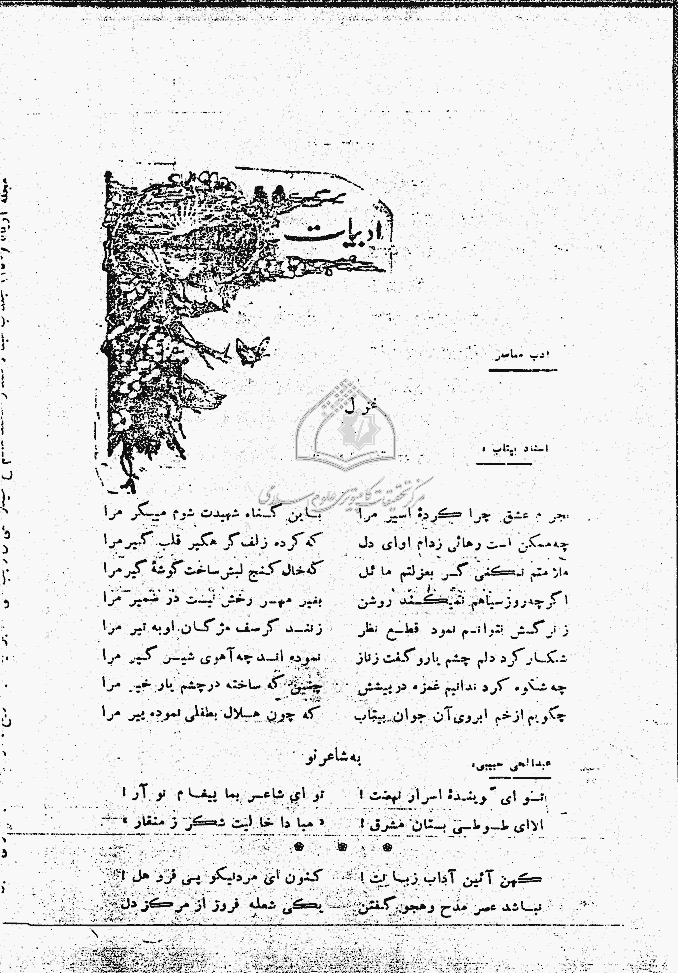 ادبیات
ادب معاصر
غزل
استاد بیتاب
مرکز تحقیقات کامپیوتری علوم اسلامی
بجرم عشق چرا کردۀ اسیر مرا باین گناه شهیدت شوم میگر مرا
چه ممکن است رهائی زدام اوای دل که کرده زلف گر هگیر قلب گیر مرا
ملامتم نکنی گر بعزلتم مائل که خال کنج لبش ساخت گوشۀ گیر مرا
اگرچه روز سیاهم نمیکند روشن بغیر مهر رخش نیست در ضمیر مرا
ز نرگسش نتوانم نمود قطع نظر زنند گر صف مژگان او به تیر مرا
شکار کرد دلم چشم یار و گفت زناز نموده اند چه آهوی شیر گیر مرا
چه شکوه کرد ندانیم غمزه در پیشش چنین که ساخته در چشم یار خیر مرا
چگویم از خم ابروی آن جوان بیتاب که چون هلال بطفلی نموده پیر مرا
به شاعر نو
عبدالحی حبیبی
تو ای گویندۀ اسرار نهضت ! تو ای شاعر بما پیغام نو آر !
الاای طوطی بستان مشرق ! « مبادا خالیت شکر ز منقار »
کهن آئین آداب زبانت ! کنون ای مرد نیکو پی فرو هل !
نباشد عصر مدح وهجو گفتن یکی شعله فروز از مرکز دل